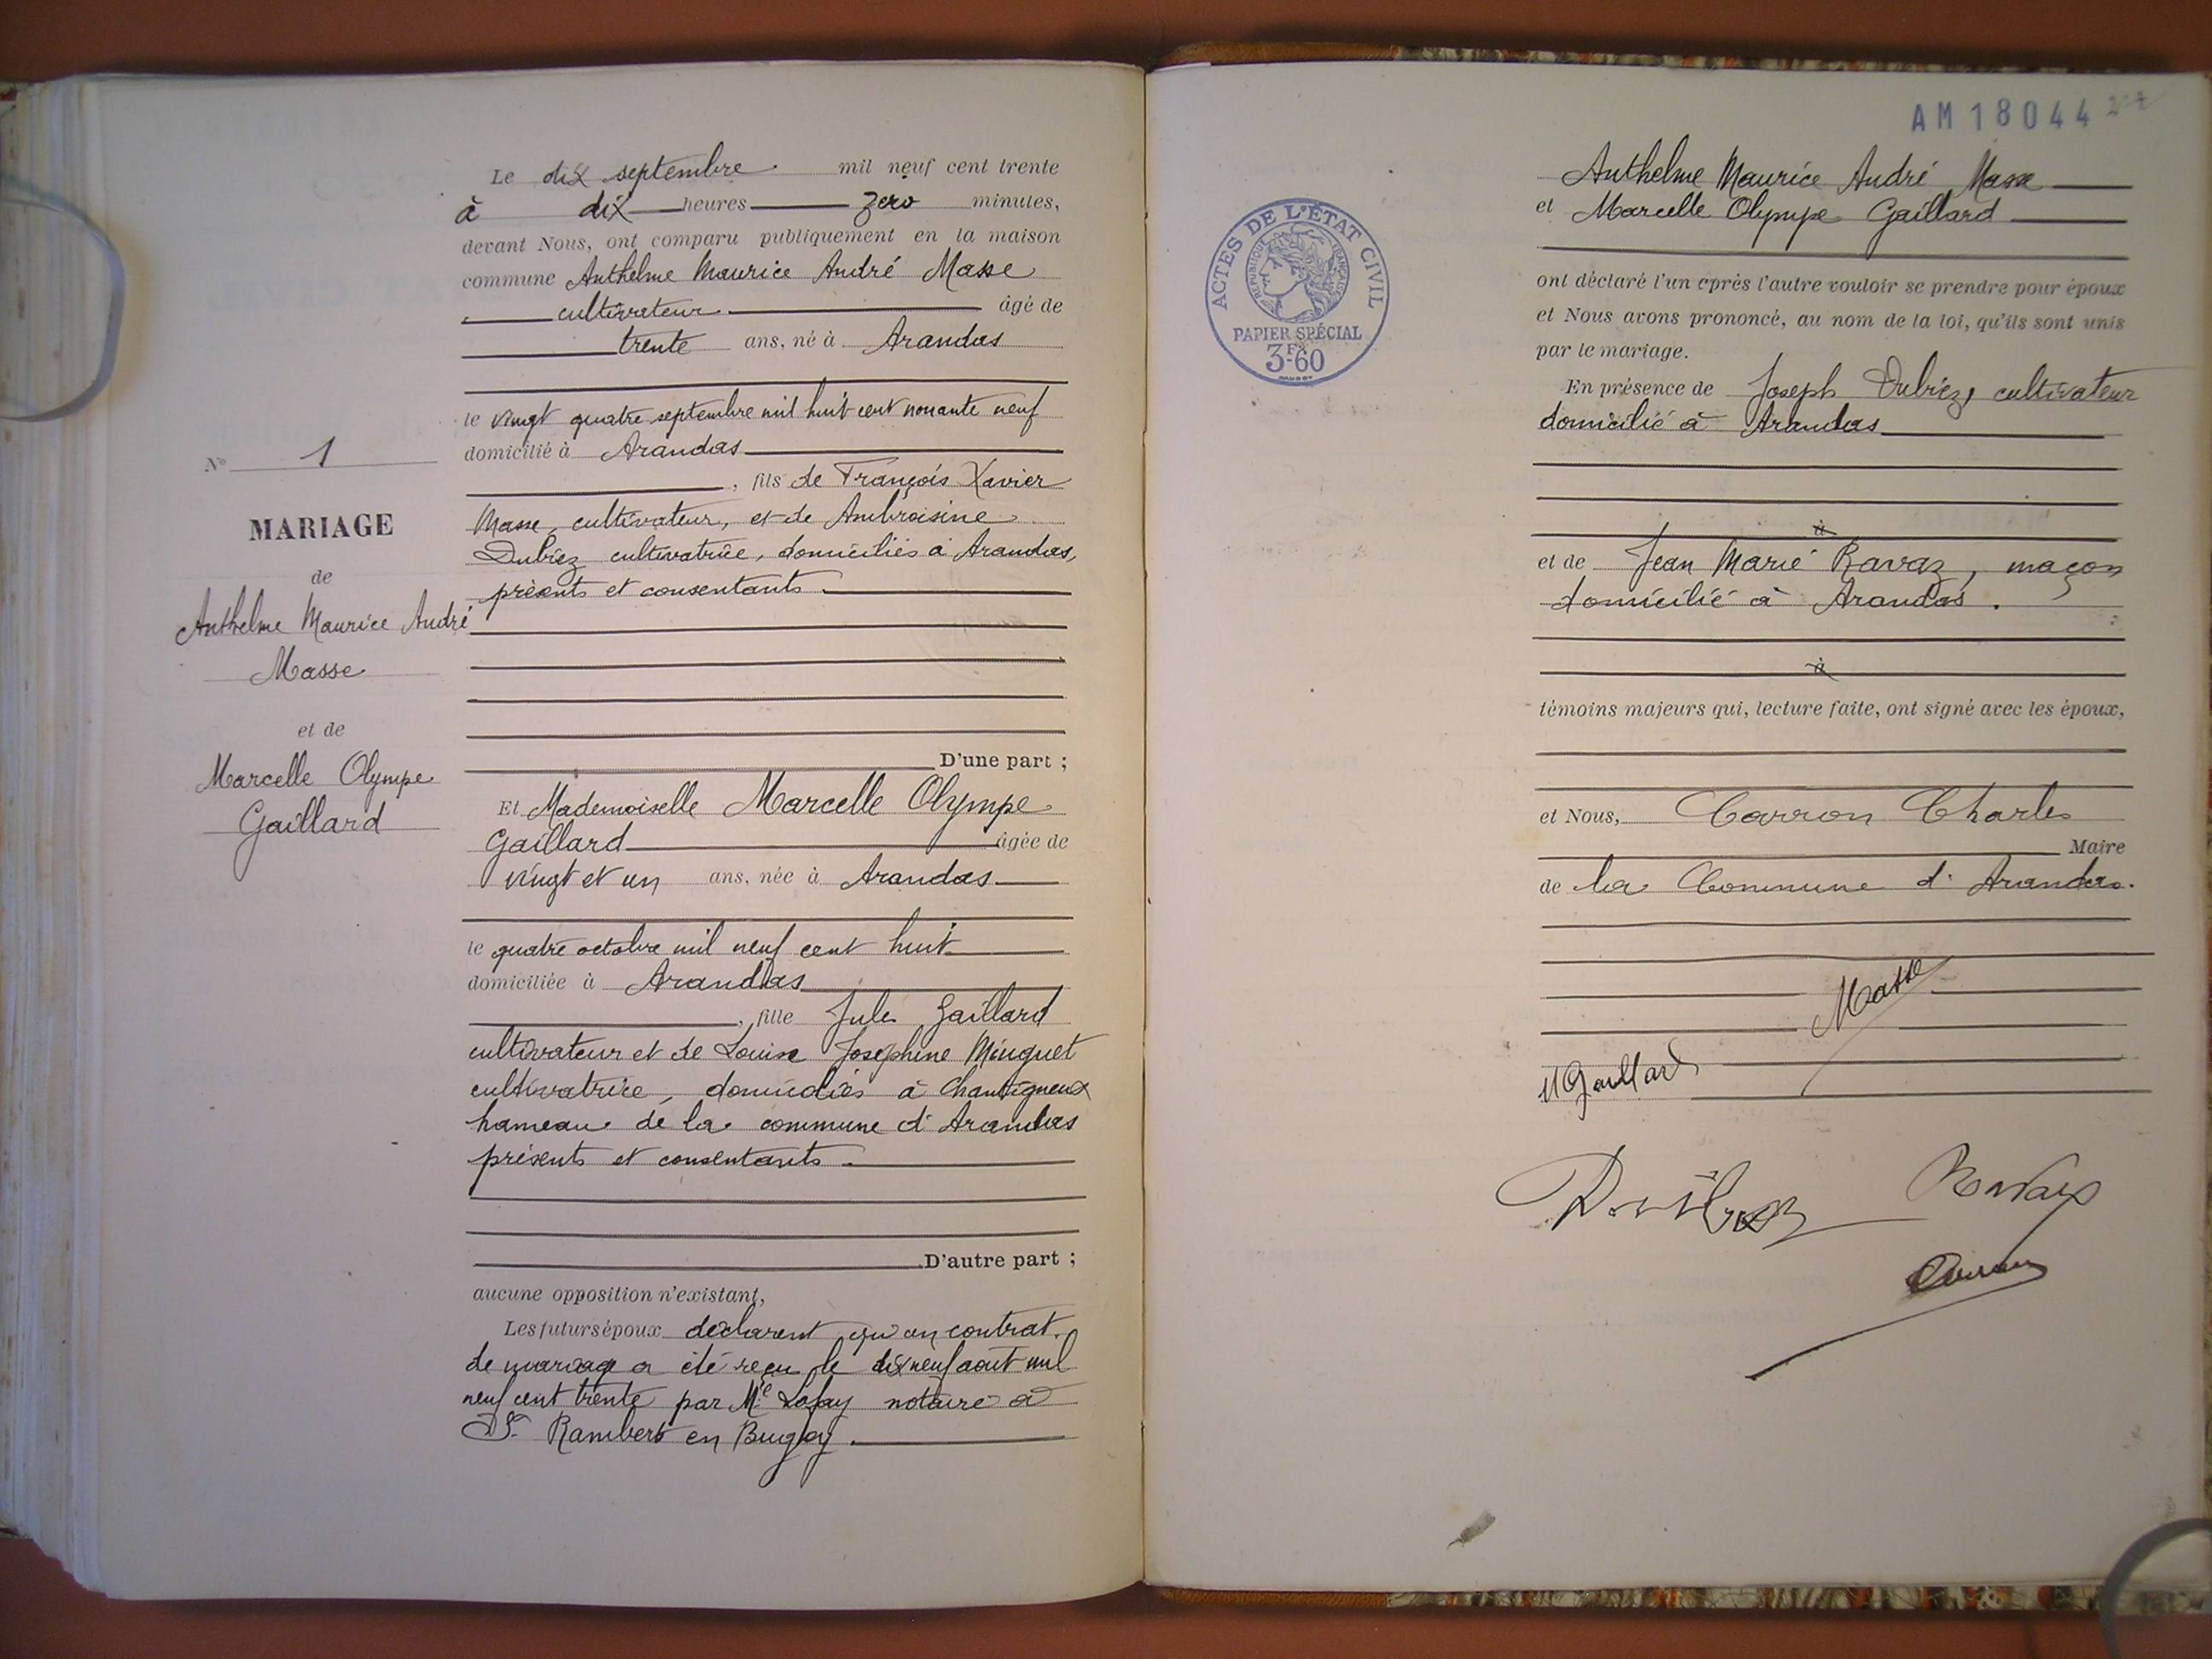 Le dix septembre mil neuf cent trente
à dix heures zero minutes,
devant Nous, ont comparu publiquement en la maison
commune Anthelme Maurice André Masse
cultivateur âgé de
trente ans, né à Arandas
le vingt quatre septembre mil huit cent nonante neuf
domicilié à Arandas
, fils de François Xavier
Masse, cultivateur, et de Ambroisine
Dubiez cultivatrice, domiciliés à Arandas,
présents et consentants.
D'une part ;
Et Mademoiselle Marcelle Olympe
Gaillard âgée de
vingt et un ans, née à Arandas
le quatre octobre mil neuf cent huit
domiciliée à Arandas
, fille Jules Gaillard
cultivateur et de Louise Joséphine Minguet
cultivatrice, domiciliés à Chantigneux
hameau de la commune d'Arandas
présents et consentants.
D'autre part ;
aucune opposition n'existant,
Les futurs époux déclarent qu'un contrat
de mariage a été reçu le dix neuf août mil
neuf cent trente par Me Lafay notaire à
St Rambert en Bugey.
No 1
MARIAGE
de
Anthelme Maurice André
Masse
et de
Marcelle Olympe
Gaillard
AM 18044
ACTES DE L'ÉTAT CIVIL
RÉPUBLIQUE FRANÇAISE
PAPIER SPÉCIAL
3Fs60
Anthelme Maurice André Masse
et Marcelle Olympe Gaillard
ont déclaré l'un après l'autre vouloir se prendre pour époux
et Nous avons prononcé, au nom de la loi, qu'ils sont unis
par le mariage.
En présence de Joseph Dubiez, cultivateur
domicilié à Arandas
à
et de Jean Marie Ravaz, maçon
domicilié à Arandas.
à
témoins majeurs qui, lecture faite, ont signé avec les époux,
et Nous, Carron Charles
Maire
de la Commune d'Arandas.
Masse
M Gaillard
Ravaz